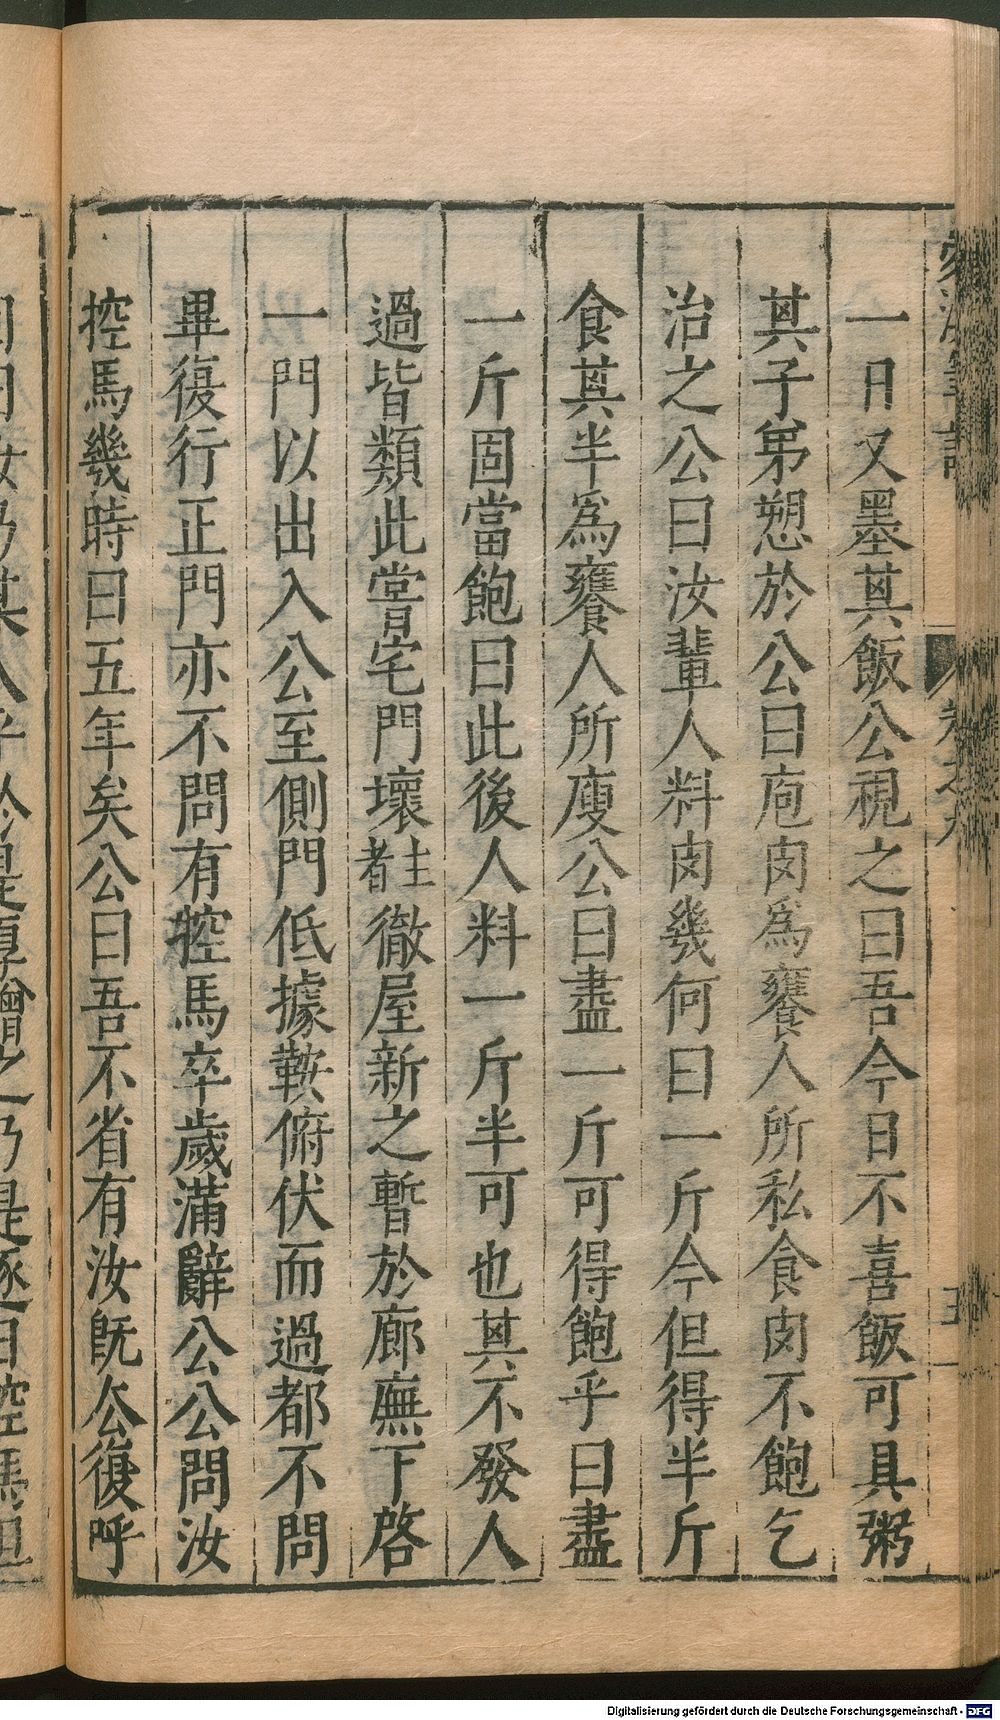 一日又墨其飯公視之曰吾今日不喜飯可具粥
其子弟愬於公曰庖肉爲饔人所私食肉不飽乞
治之公曰汝輩人料肉幾何曰一斤今但得半斤
食其半爲饔人所廋公曰盡一斤可得飽乎曰盡
一斤固當飽曰此後人料一斤半可也其不發人
過皆類此嘗宅門壞主者徹屋新之暫於廊廡下啓
一門以出入公至側門低據鞍俯伏而過都不問
畢復行正門亦不問有控馬卒歲滿辭公公問汝
控馬幾時曰五年矣公曰吾不省有汝旣去復呼
Digitalisierung gefördert durch die Deutsche Forschungsgemeinschaft - DFG